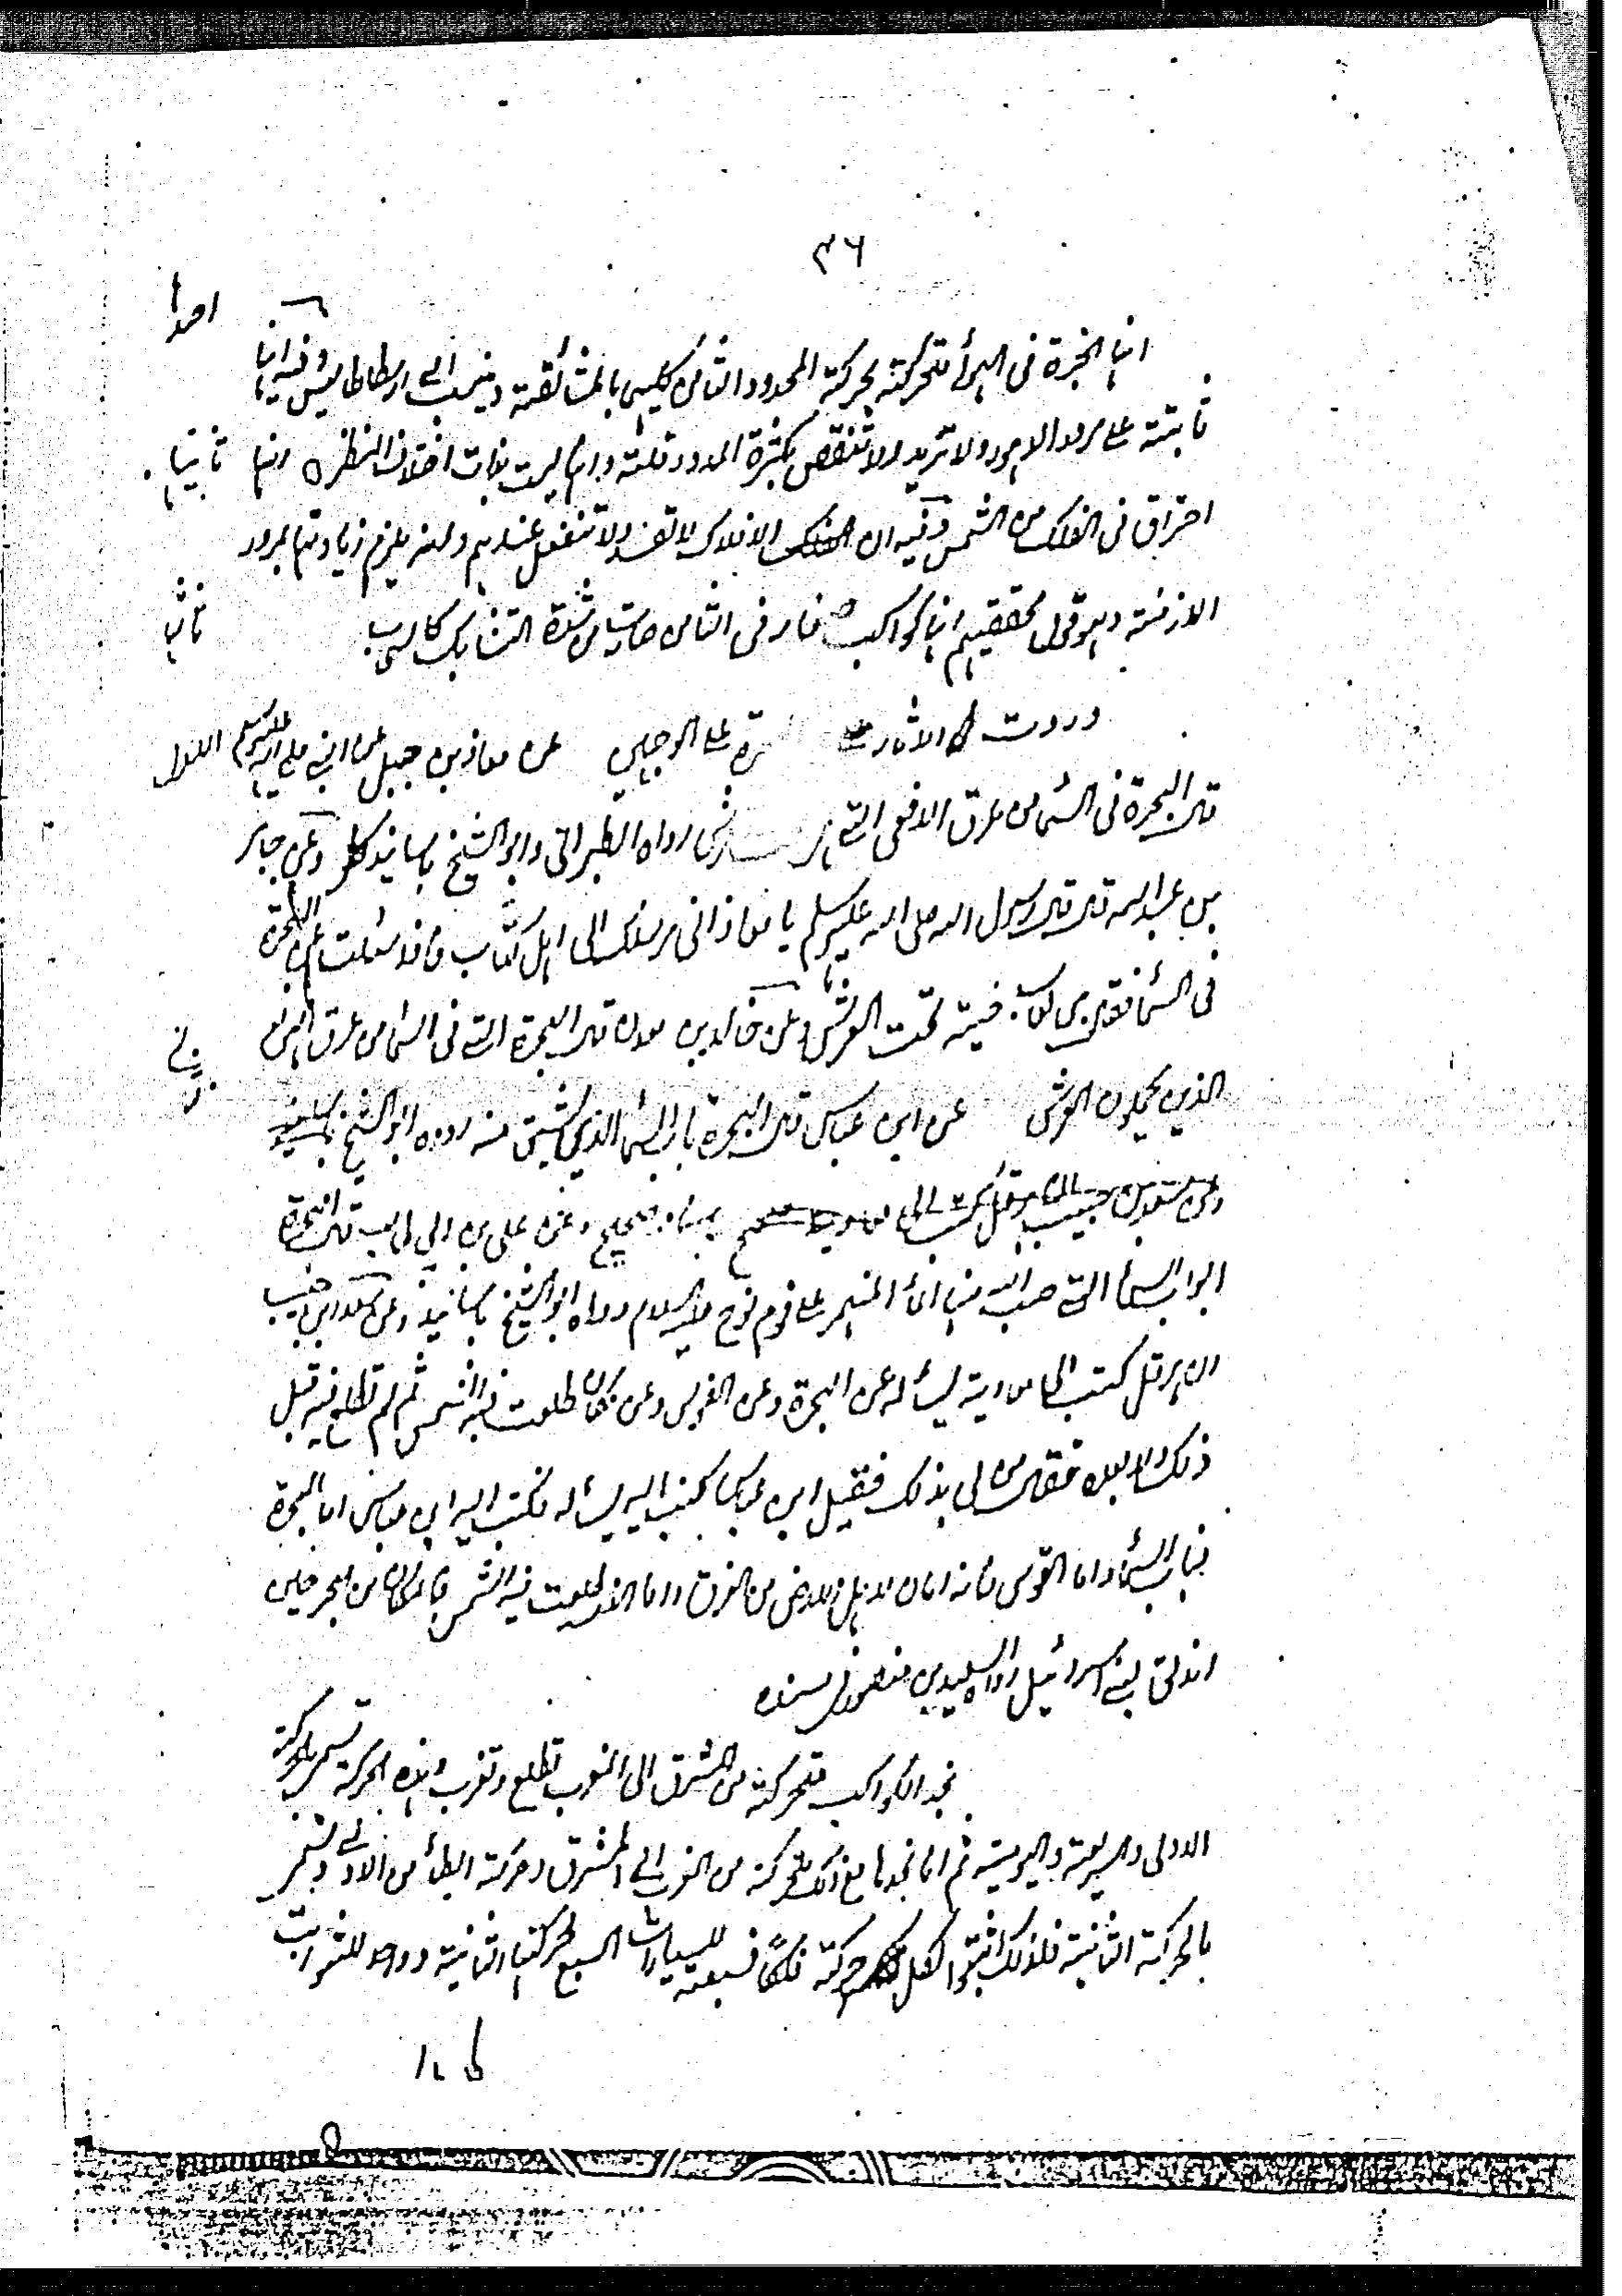 ٣٦
احدها
انها ابخرة فى الهوأ متحركة بحركة المحدود الثامن كليس بالمشائقية وينسب الى ارسطاطاليس وفيه انها
ثابتة على مرور الدهور ولا تزيد ولا تنقص بكثرة المدود وقلته وانها ليست بذات اختلاف النظر انها ثانيها
احتراق فى الفلك من الشمس وفيه ان الافلاك لا تفسد ولا تنفعل عندهم ولانه يلزم زيادتها بمرور
الازمنة وهو قول محققيهم انها كواكب صغار فى الثامن صارت من شدة التشابك كالسحاب ثالثها
وردت الاثار على الوجهين عن معاذ بن جبل عن النبى صلى الله عليه وسلم الاول
قال المجرة فى السماء من عرق الافعى التى رواه الطبرانى وابو الشيخ باسانيد وعن جابر
بن عبد الله قال قال رسول الله صلى الله عليه وسلم يا معاذ انى مرسلك الى اهل كتاب فاذا سئلت عن المجرة
فى السماء فقل هى لعاب حية تحت العرش وعن خالد بن معدان قال المجرة التى فى السماء من عرق
الذين يحملون العرش عن ابن عباس قال المجرة باب السماء الذى تنشق منه رواه ابو الشيخ
بسناد صحيح وعن على بن ابى طالب قال المجرة
ابواب السماء التى صب الله منها الماء المنهمر على قوم نوح عليه السلام رواه ابو الشيخ باسانيد وعن سعيد بن جبير
ان هرقل كتب الى معاوية يسأله عن المجرة وعن القوس وعن مكان طلعت فيه الشمس ثم لم تطلع فيه قبل
ذلك ولا بعده فقال من لى بذلك فقيل ابن عباس فكتب اليه يسأله فكتب اليه ابن عباس اما المجرة
فباب السماء واما القوس فانه امان لاهل الارض من الغرق واما الذى طلعت فيه الشمس فالمكان من البحر حين
انفلق لبنى اسرائيل رواه سعيد بن منصور فى سننه
نجد الكواكب متحركة من المشرق الى المغرب تطلع وتغرب وهذه الحركة تسمى بالحركة
الاولى والسريعة واليومية ثم انا نجدها مع ذلك متحركة من المغرب الى المشرق وحركة ابطأ من الاولى وتسمى
بالحركة الثانية فلذلك اثبتوا لكل حركة فلكًا فسبعة للسيارات السبع لحركتها الثانية وواحد للثوابت